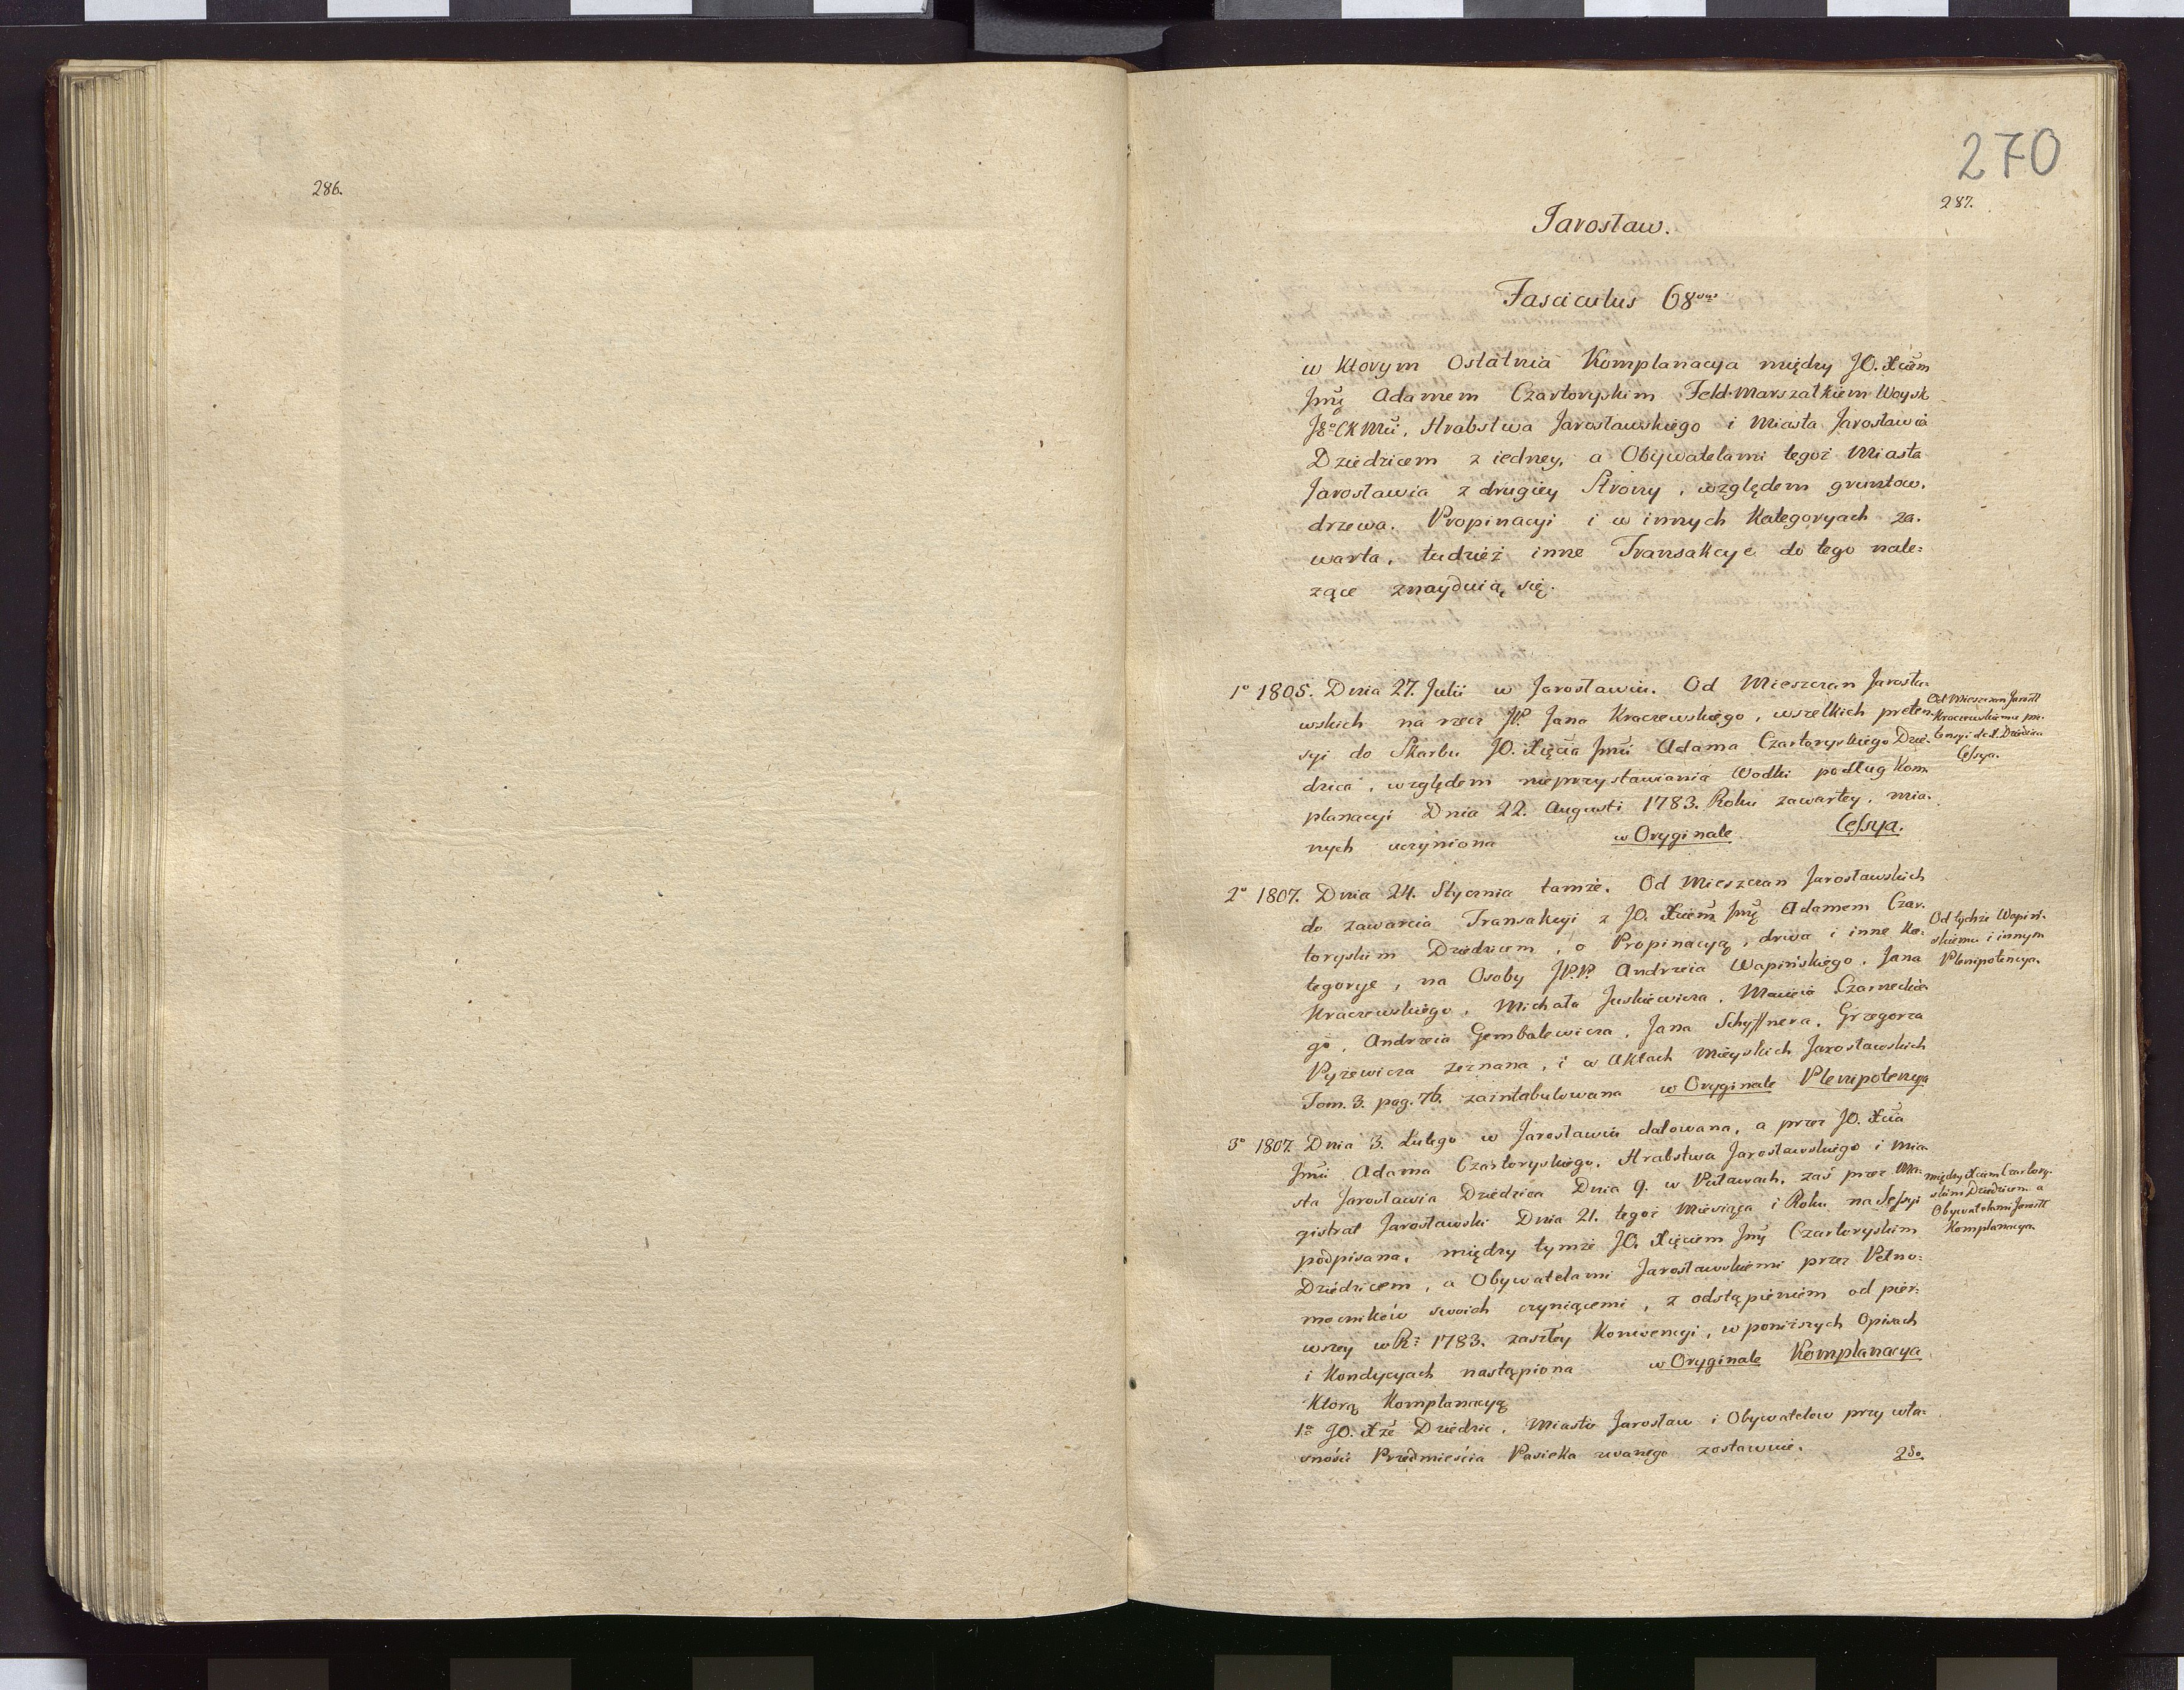 286.
270
287.
Jarosław.
Fasciculus 68vus
w Ktorym Ostatnia Komplanacya między JO. Xciem
Jmć Adamem Czartoryskim Feld-Marszałkiem Woysk
JgoCKMci, Hrabstwa Jarosławskiego i Miasta Jarosławia
Dziedzicem z iedney, a Obywatelami tegoż Miasta
Jarosławia z drugiey Strony, względem gruntow,
drzewa, Propinacyi i w innych Kategoryach za-
warta, tudzież inne Transakcye do tego nale=
żące znayduią się.
1o 1805. Dnia 27. Julii w Jarosławiu. Od Mieszczan Jarosła-
wskich na rzecz JP. Jana Kraczewskiego, wszelkich preten-
syi do Skarbu JO. Xięcia Jmci Adama Czartoryskiego Dzie-
dzica, względem nieprzystawiania Wodki podług Kom-
planacyi Dnia 22. Augusti 1783. Roku zawartey, mia-
nych uczyniona w Oryginale Cessya.
Od Mieszczan Jarosł
Kraczewskiemu pre-
tensyi do X. Dziedzica
Cessya.
2o 1807. Dnia 24. Stycznia tamże. Od Mieszczan Jarosławskich
do zawarcia Transakcyi z JO. Xciem Jmć Adamem Czar-
toryskim Dziedzicem, o Propinacyą, drwa i inne Ka-
tegorye, na Osoby JP.P. Andrzeia Wapińskiego, Jana
Kraczewskiego, Michała Juskiewicza, Macieia Czarneckie-
go, Andrzeia Gembalewicza, Jana Schyffnera, Grzegorza
Pyżewicza zeznana, i w Aktach Mieyskich Jarosławskich
Tom. 3. pag. 76. zaintabulowana w Oryginale Plenipotencya
Od tychże Wapiń-
skiemu i innym
Plenipotencya.
3o 1807. Dnia 3. Lutego w Jarosławiu datowana, a przez JO. Xcia
Jmci Adama Czartoryskiego, Hrabstwa Jarosławskiego i Mia-
sta Jarosławia Dziedzica Dnia 9. w Puławach, zaś przez Ma-
gistrat Jarosławski Dnia 21. tegoż Miesiąca i Roku na Sessyi
podpisana, między tymże JO. Xięciem Jmć Czartoryskim
Dziedzicem, a Obywatelami Jarosławskiemi przez Pełno-
mocników swoich czyniącemi, z odstąpieniem od pier-
wszey w R: 1783. zaszłey Konwencyi, w poniższych Opisach
i Kondycyach nastąpiona w Oryginale Komplanacya
między Xciem Czartory-
skim Dziedzicem a
Obywatelami Jarosł
Komplanacya.
Ktorą Komplanacyą
1o JO. Xże Dziedzic, Miasto Jarosław i Obywatelow przy wła-
sności Przedmieścia Pasieka zwanego zostawuie.
2do.